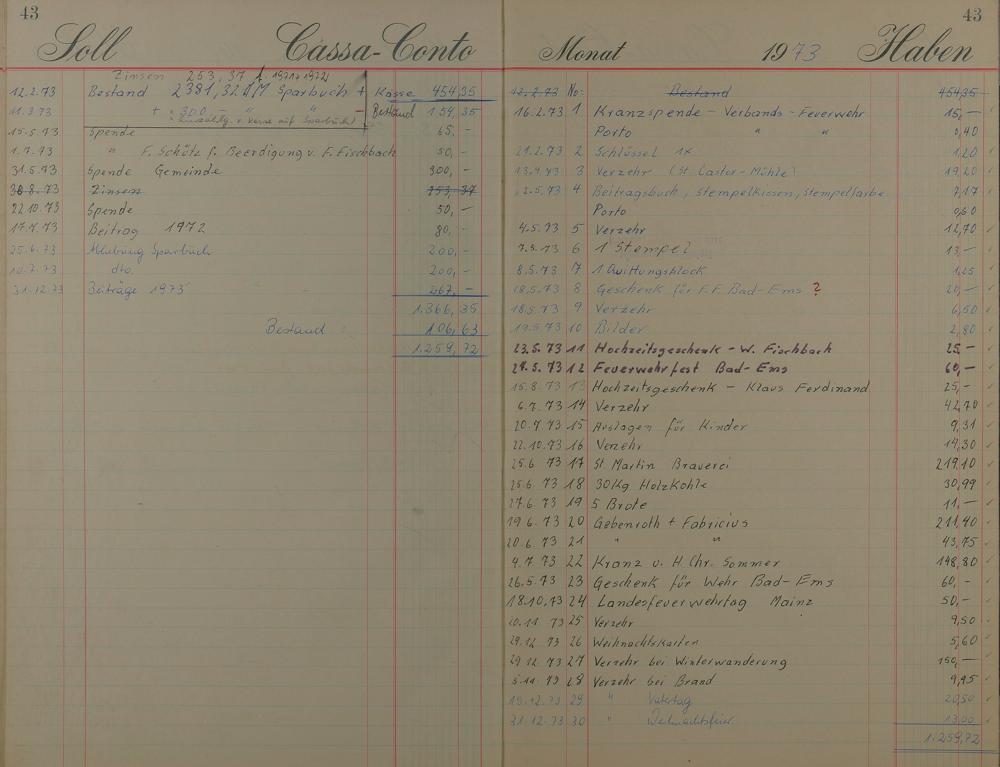 43
Soll Cassa-Conto
Zinsen 253,37 1971+1972
12.2.73 Bestand 2381,32 DM Sparbuch + Kasse 454,35
11.3.73 + " 300,- " " - Bestand 154,35
" Einzahlg. v. Kasse auf Sparbuch
15.5.73 Spende 65,-
1.7.73 " F. Schütz f. Beerdigung v. F. Fischbach 50,-
31.5.73 Spende Gemeinde 300,-
30.8.73 Zinsen 253,37
22.10.73 Spende 50,-
17.7.73 Beitrag 1972 80,-
25.6.73 Abhebung Sparbuch 200,-
10.7.73 dto. 200,-
31.12.73 Beiträge 1973 267,-
1.366,35
Bestand 106,63
1.259,72
43
Monat 1973 Haben
12.2.73 No: Bestand 454,35
16.2.73 1 Kranzspende - Verbands-Feuerwehr 15,-
Porto " " 0,40
21.2.73 2 Schlüssel 1x 1,20
13.4.73 3 Verzehr (St. Castor-Mühle) 19,20
2.5.73 4 Beitragsbuch, Stempelkissen, Stempelfarbe 7,17
Porto 0,60
4.5.73 5 Verzehr 12,70
7.5.73 6 1 Stempel 13,-
8.5.73 7 1 Quittungsblock 1,25
18.5.73 8 Geschenk für F.F. Bad-Ems ? 20,-
18.5.73 9 Verzehr 6,50
19.5.73 10 Bilder 2,80
23.5.73 11 Hochzeitsgeschenk - W. Fischbach 25,-
29.5.73 12 Feuerwehrfest Bad-Ems 60,-
15.8.73 13 Hochzeitsgeschenk - Klaus Ferdinand 25,-
6.7.73 14 Verzehr 42,70
20.7.73 15 Auslagen für Kinder 9,31
22.10.73 16 Verzehr 14,30
25.6 73 17 St. Martin Brauerei 219,10
25.6. 73 18 30Kg Holzkohle 30,99
27.6 73 19 5 Brote 11,-
19 6.73 20 Gebenroth + Fabricius 211,40
20.6.73 21 " " 43,75
4.7.73 22 Kranz v. H. Chr. Sommer 148,80
26.5.73 23 Geschenk für Wehr Bad-Ems 60,-
18.10.73 24 Landesfeuerwehrtag Mainz 50,-
10.11 73 25 Verzehr 9,50
29.12 73 26 Weihnachtskarten 5,60
29 12 73 27 Verzehr bei Winterwanderung 150,-
5.11 73 28 Verzehr bei Brand 9,95
19.12.73 29 " Vatertag 20,50
31.12.73 30 " Weihnachtsfeier 13,00
1.259,72